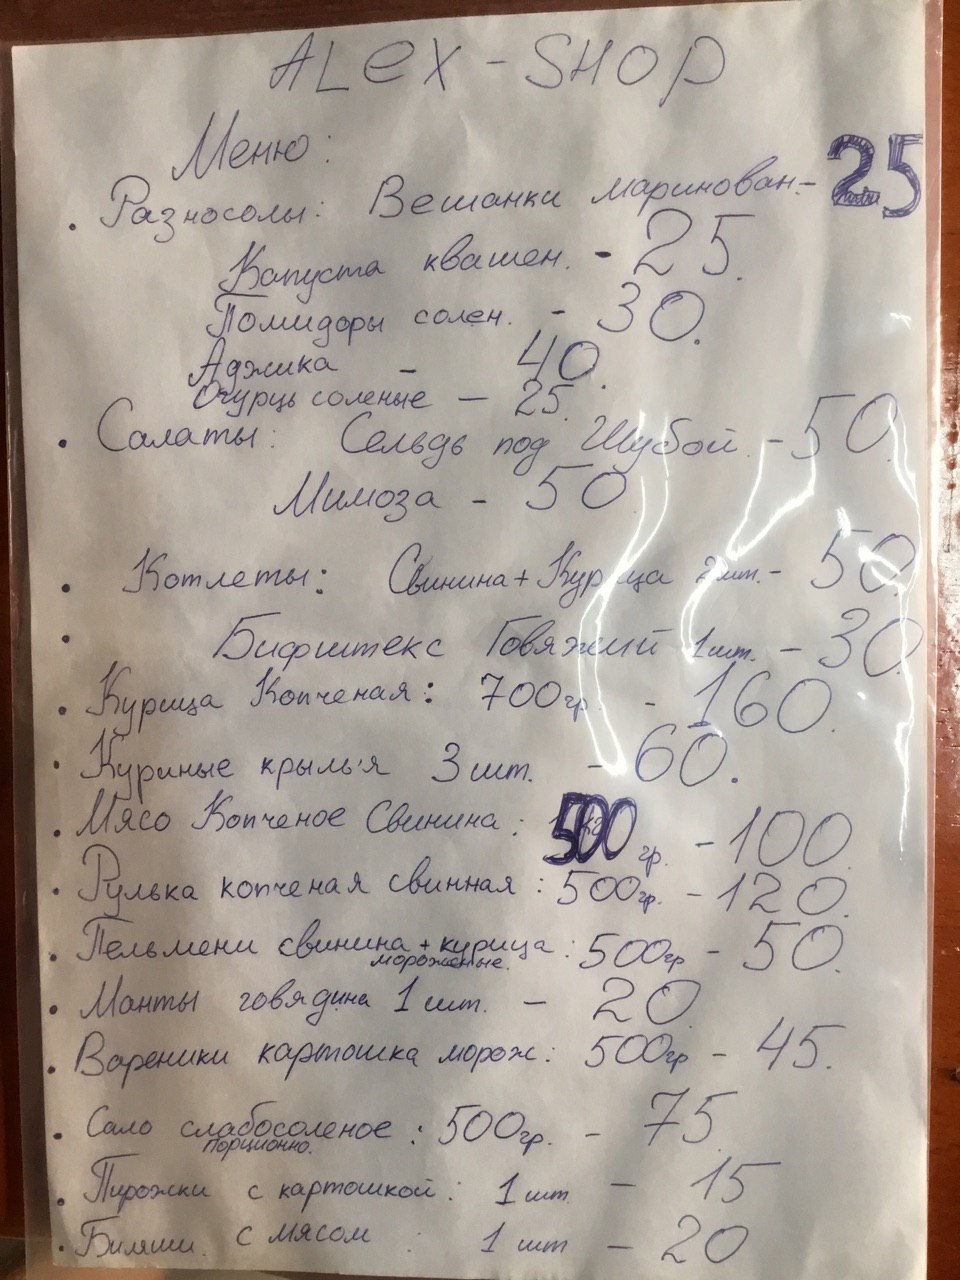 ALEX - SHOP
Меню:
• Разносолы: Вешанки маринован.- 25
Капуста квашен. - 25.
Помидоры солен. - 30.
Аджика - 40.
Огурць соленые - 25.
• Салаты: Сельдь под Шубой. - 50.
Мимоза - 50.
• Котлеты: Свинина + Курица 2 шт. - 50.
• Бифштекс Говяжий 1 шт. - 30.
• Курица Копченая: 700гр. - 160.
• Куриные крылья 3 шт. - 60.
• Мясо Копченое Свинина: 500 гр. - 100.
• Рулька копченая свинная: 500гр. - 120.
• Пельмени свинина + курица: 500гр - 50.
мороженые.
• Манты говядина 1 шт. - 20.
• Вареники картошка морож: 500гр - 45.
• Сало слабосоленое: 500гр. - 75.
порционно.
• Пирожки с картошкой: 1 шт. - 15
• Биляши. с мясом : 1 шт - 20